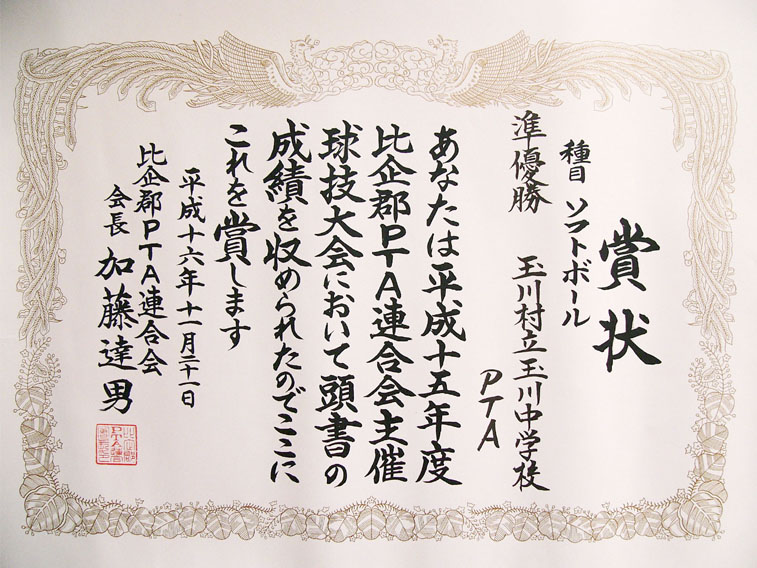 賞状
種目 ソフトボール
準優勝 玉川村立玉川中学校
PTA
あなたは平成十五年度
比企郡PTA連合会主催
球技大会において頭書の
成績を収められたのでここに
これを賞します
平成十六年十一月二十一日
比企郡PTA連合会
会長 加藤達男